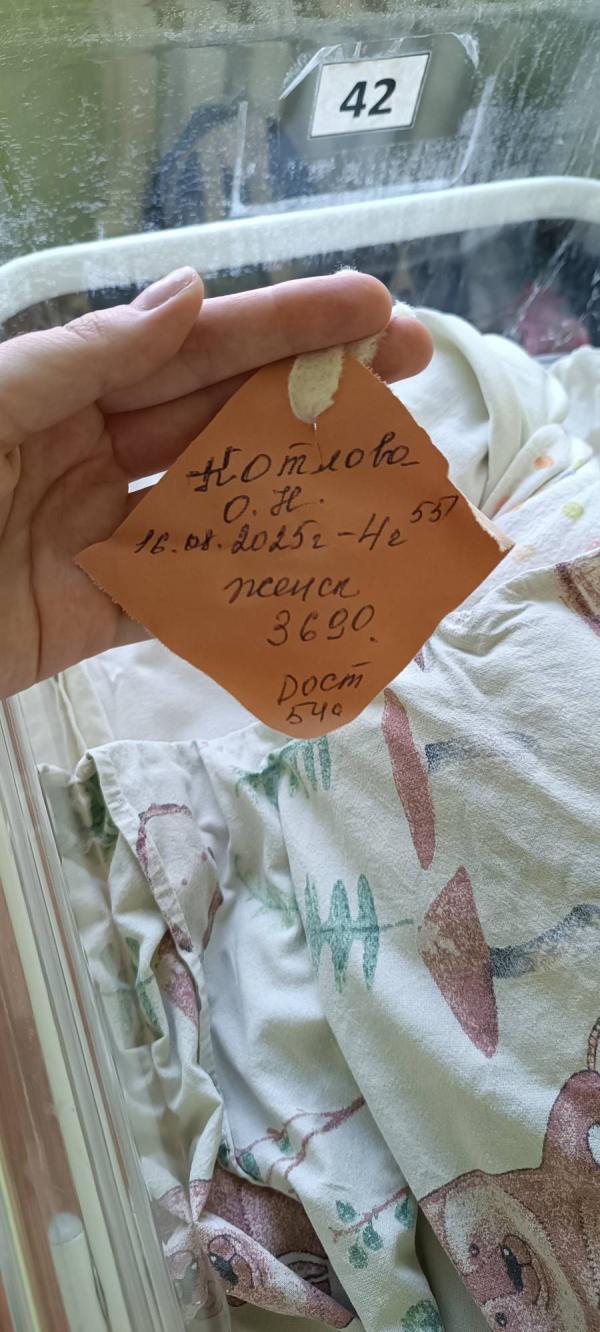 42
Котлова
О. Н.
16.08.2025г - 4г 55'
женск
3690.
Дост
54с